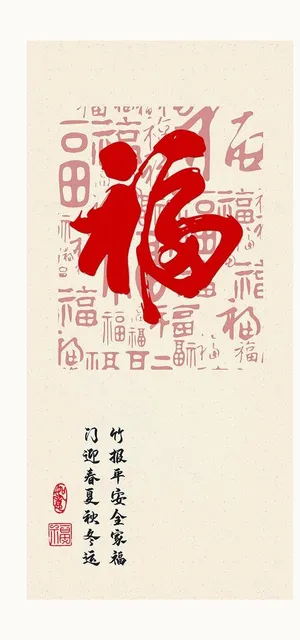 福
竹报平安全家福
门迎春夏秋冬运
福